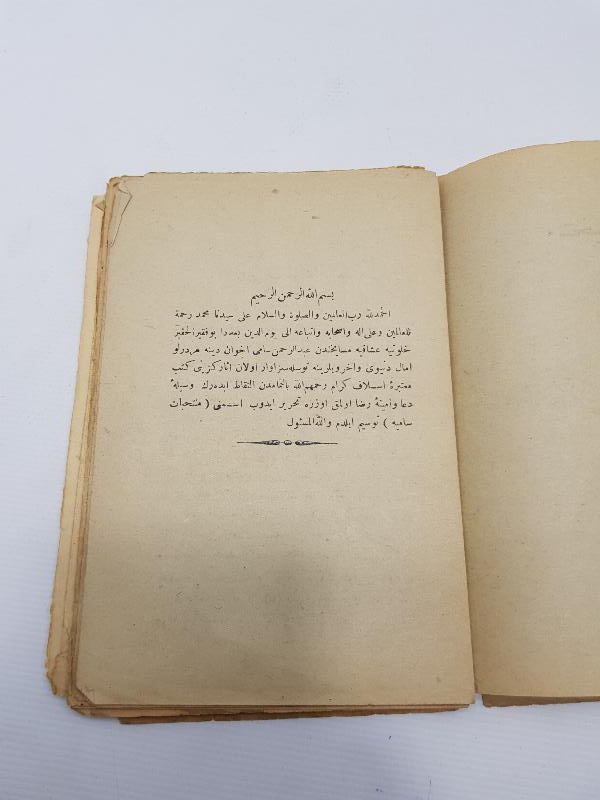 بسم الله الرحمن الرحيم
الحمدلله رب العالمين والصلوة والسلام على سيدنا محمد رحمة
للعالمين وعلى اله واصحابه واتباعه الى يوم الدين بعددا بوفقير الحقير
خلوتيه عشاقيه مشايخندن عبدالرحمن سامى اخوان دينه هردرلو
امال دنيوى واخرويلرينه توسله سزاوار اولان اثار كزينى كتب
معتبرۀ اسلاف كرام رحمهم الله بالتمامدن التقاط ايده رك وسيلۀ
دعا وامنيۀ رضا اولمق اوزره تحرير ايدوب اسمنى ( منتخبات
ساميه ) توسيم ايلدم والله المسئول